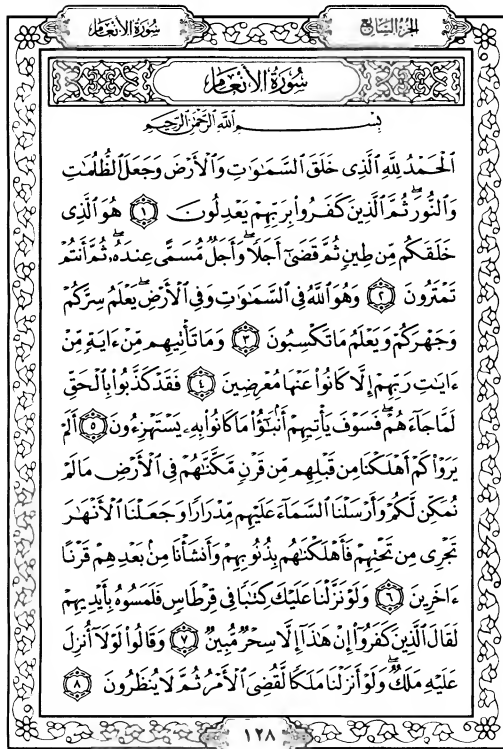 سُورَةُ الأَنْعَام
الجُزْءُ السَّابِع
سُورَةُ الأَنْعَام
بِسْمِ ٱللَّهِ ٱلرَّحْمَٰنِ ٱلرَّحِيمِ
ٱلْحَمْدُ لِلَّهِ ٱلَّذِى خَلَقَ ٱلسَّمَٰوَٰتِ وَٱلْأَرْضَ وَجَعَلَ ٱلظُّلُمَٰتِ
وَٱلنُّورَ ۖ ثُمَّ ٱلَّذِينَ كَفَرُوا۟ بِرَبِّهِمْ يَعْدِلُونَ ١ هُوَ ٱلَّذِى
خَلَقَكُم مِّن طِينٍ ثُمَّ قَضَىٰٓ أَجَلًا ۖ وَأَجَلٌ مُّسَمًّى عِندَهُۥ ۖ ثُمَّ أَنتُمْ
تَمْتَرُونَ ٢ وَهُوَ ٱللَّهُ فِى ٱلسَّمَٰوَٰتِ وَفِى ٱلْأَرْضِ ۖ يَعْلَمُ سِرَّكُمْ
وَجَهْرَكُمْ وَيَعْلَمُ مَا تَكْسِبُونَ ٣ وَمَا تَأْتِيهِم مِّنْ ءَايَةٍ مِّنْ
ءَايَٰتِ رَبِّهِمْ إِلَّا كَانُوا۟ عَنْهَا مُعْرِضِينَ ٤ فَقَدْ كَذَّبُوا۟ بِٱلْحَقِّ
لَمَّا جَآءَهُمْ ۖ فَسَوْفَ يَأْتِيهِمْ أَنۢبَٰٓؤُا۟ مَا كَانُوا۟ بِهِۦ يَسْتَهْزِءُونَ ٥ أَلَمْ
يَرَوْا۟ كَمْ أَهْلَكْنَا مِن قَبْلِهِم مِّن قَرْنٍ مَّكَّنَّٰهُمْ فِى ٱلْأَرْضِ مَا لَمْ
نُمَكِّن لَّكُمْ وَأَرْسَلْنَا ٱلسَّمَآءَ عَلَيْهِم مِّدْرَارًا وَجَعَلْنَا ٱلْأَنْهَٰرَ
تَجْرِى مِن تَحْتِهِمْ فَأَهْلَكْنَٰهُم بِذُنُوبِهِمْ وَأَنشَأْنَا مِنۢ بَعْدِهِمْ قَرْنًا
ءَاخَرِينَ ٦ وَلَوْ نَزَّلْنَا عَلَيْكَ كِتَٰبًا فِى قِرْطَاسٍ فَلَمَسُوهُ بِأَيْدِيهِمْ
لَقَالَ ٱلَّذِينَ كَفَرُوٓا۟ إِنْ هَٰذَآ إِلَّا سِحْرٌ مُّبِينٌ ٧ وَقَالُوا۟ لَوْلَآ أُنزِلَ
عَلَيْهِ مَلَكٌ ۖ وَلَوْ أَنزَلْنَا مَلَكًا لَّقُضِىَ ٱلْأَمْرُ ثُمَّ لَا يُنظَرُونَ ٨
١٢٨